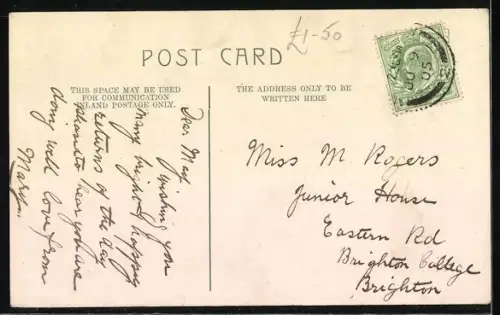 £1-50
POST CARD
THIS SPACE MAY BE USED
FOR COMMUNICATION
INLAND POSTAGE ONLY.
THE ADDRESS ONLY TO BE
WRITTEN HERE
Dear May
Wishing you
many bright & happy
returns of the day
pleased to hear you are
doing well love from
Mary.
Miss M. Rogers
Junior House
Eastern Rd
Brighton College
Brighton
JU 9
05